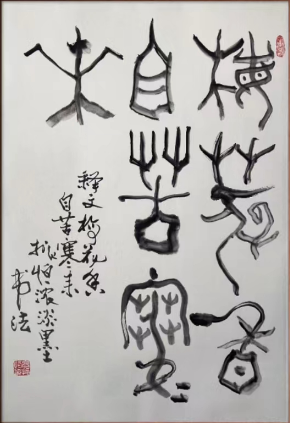 梅花香
自苦寒
来
释文梅花香
自苦寒来
浓淡墨
书法